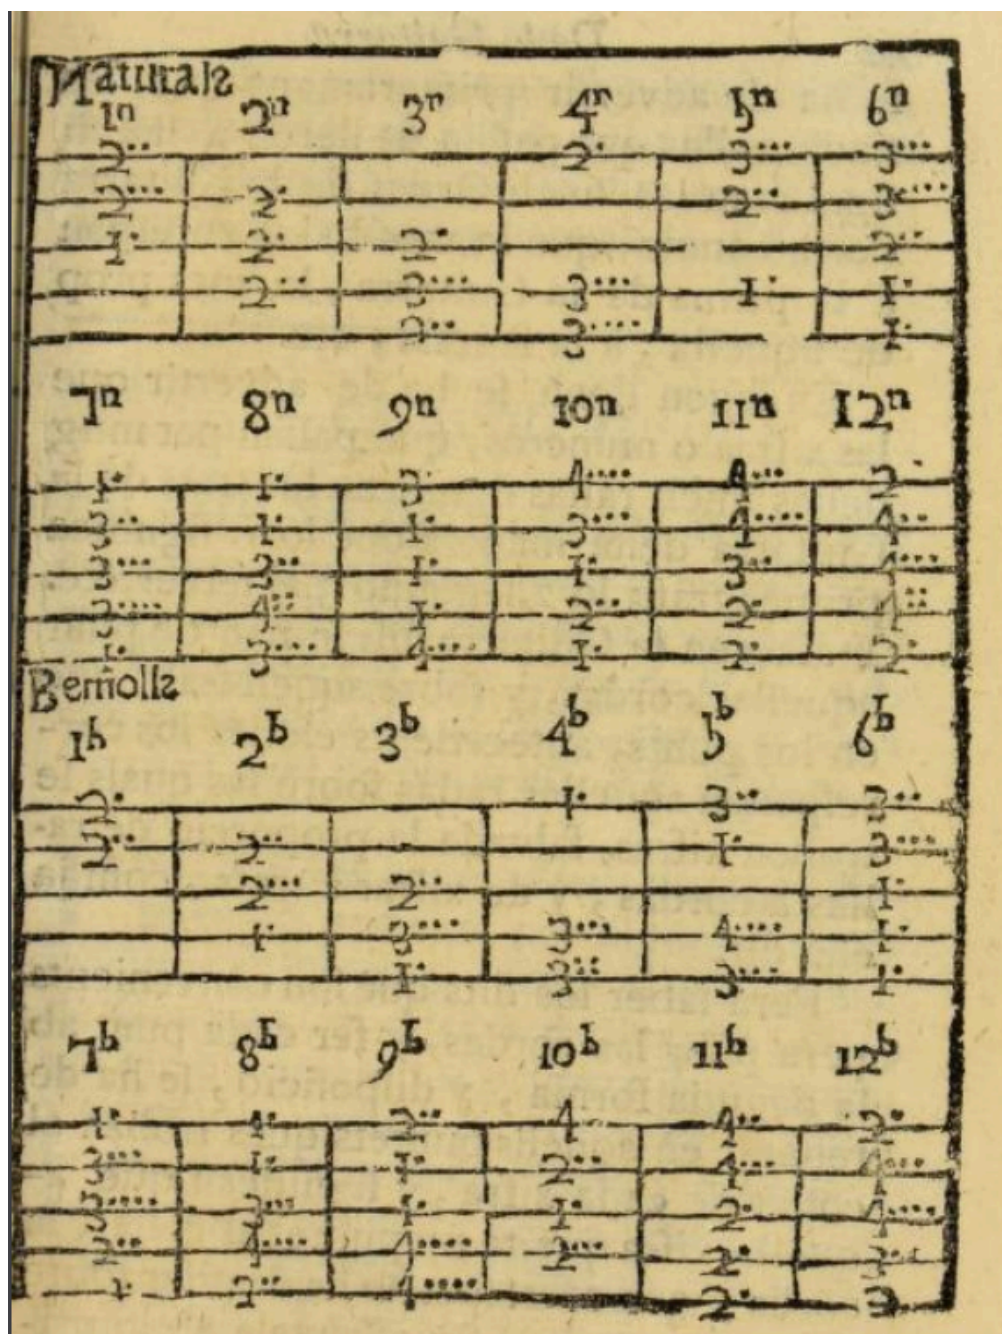 Naturals
1n 2n 3n 4n 5n 6n
2·· 2· 3··· 3···
2··· 2· 2·· 3····
1· 2· 2· 2··
2·· 3···· 3··· 1· 1·
2·· 3···· 1·
7n 8n 9n 10n 11n 12n
1· 1· 3· 4···· 4··· 2·
3·· 1· 1· 3··· 4···· 4··
3··· 3·· 1· 1· 3·· 4···
3···· 4·· 1· 2·· 2· 4··
1· 3··· 4···· 1· 2· 2·
Bemolls
1b 2b 3b 4b 5b 6b
2· 1· 3·· 3··
2·· 2·· 1· 3···
2··· 2·· 1·
1· 3··· 3··· 4···· 1·
1· 3·· 3··· 1·
7b 8b 9b 10b 11b 12b
1· 4· 2·· 4 4·· 2·
3··· 1· 1· 2·· 4··· 4···
3···· 3··· 1· 1· 2· 4····
2·· 4···· 4···· 2··· 2·
2·· 4···· 2·